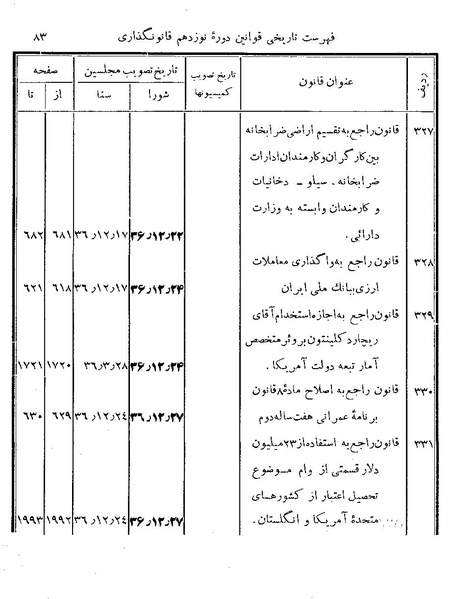 فهرست تاریخی قوانین دورهٔ نوزدهم قانونگذاری ۸۳
ردیف عنوان قانون تاریخ تصویب کمیسیونها تاریخ تصویب مجلسین صفحه
شورا سنا از تا
۳۲۷ قانون راجع به تقسیم اراضی ضرابخانه
بین کارگران و کارمندان ادارات
ضرابخانه ـ سیلو ـ دخانیات
و کارمندان وابسته به وزارت
دارائی. ۳۶٫۱۲٫۲۲ ۳۶٫۱۲٫۱۷ ۶۸۱ ۶۸۲
۳۲۸ قانون راجع به واگذاری معاملات
ارزی ببانك ملی ایران ۳۶٫۱۲٫۲۴ ۳۶٫۱۲٫۱۷ ۶۱۸ ۶۲۱
۳۲۹ قانون راجع به اجازه استخدام آقای
ریچارد کلینتون بروئر متخصص
آمار تبعه دولت آمریکا. ۳۶٫۱۲٫۲۴ ۳۶٫۳٫۲۸ ۱۷۲۰ ۱۷۲۱
۳۳۰ قانون راجع به اصلاح مادهٔ ۸ قانون
برنامهٔ عمرانی هفت ساله دوم ۳۶٫۱۲٫۲۷ ۳۶٫۱۲٫۲۴ ۶۲۹ ۶۳۰
۳۳۱ قانون راجع به استفاده از ۲۳ میلیون
دلار قسمتی از وام موضوع
تحصیل اعتبار از کشورهای
متحدهٔ آمریکا و انگلستان. ۳۶٫۱۲٫۲۷ ۳۶٫۱۲٫۲۴ ۱۹۹۲ ۱۹۹۳